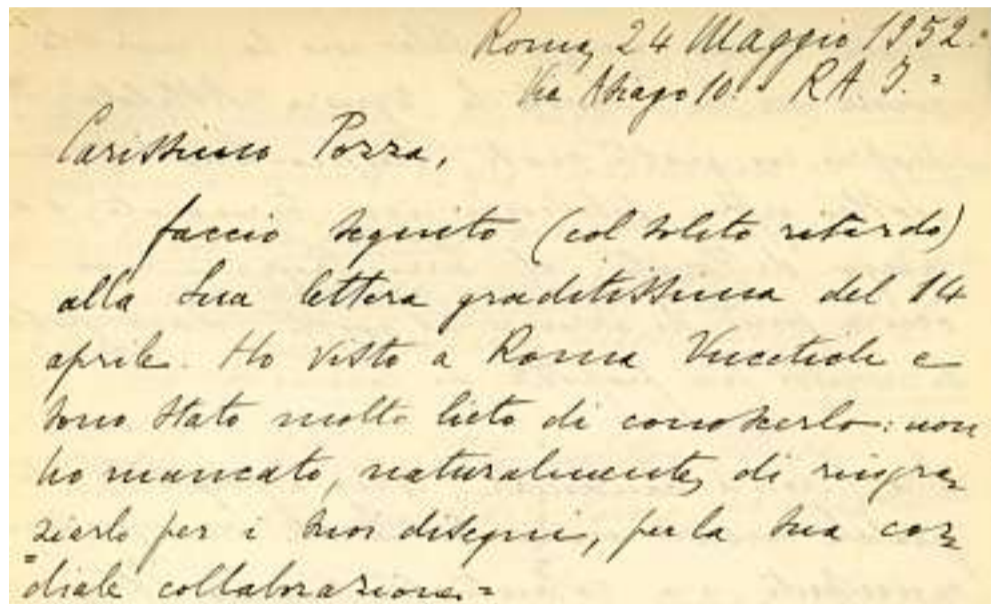 Roma, 24 Maggio 1952.=
Via Asiago 10.= R.A.I.=
Carissimo Pozza,
faccio seguito (col solito ritardo)
alla Sua lettera graditissima del 14
aprile. Ho visto a Roma e
sono stato molto lieto di conoscerlo: non
ho mancato, naturalmente, di ringra=
ziarlo per i suoi disegni, per la sua cor=
=diale collaborazione.=